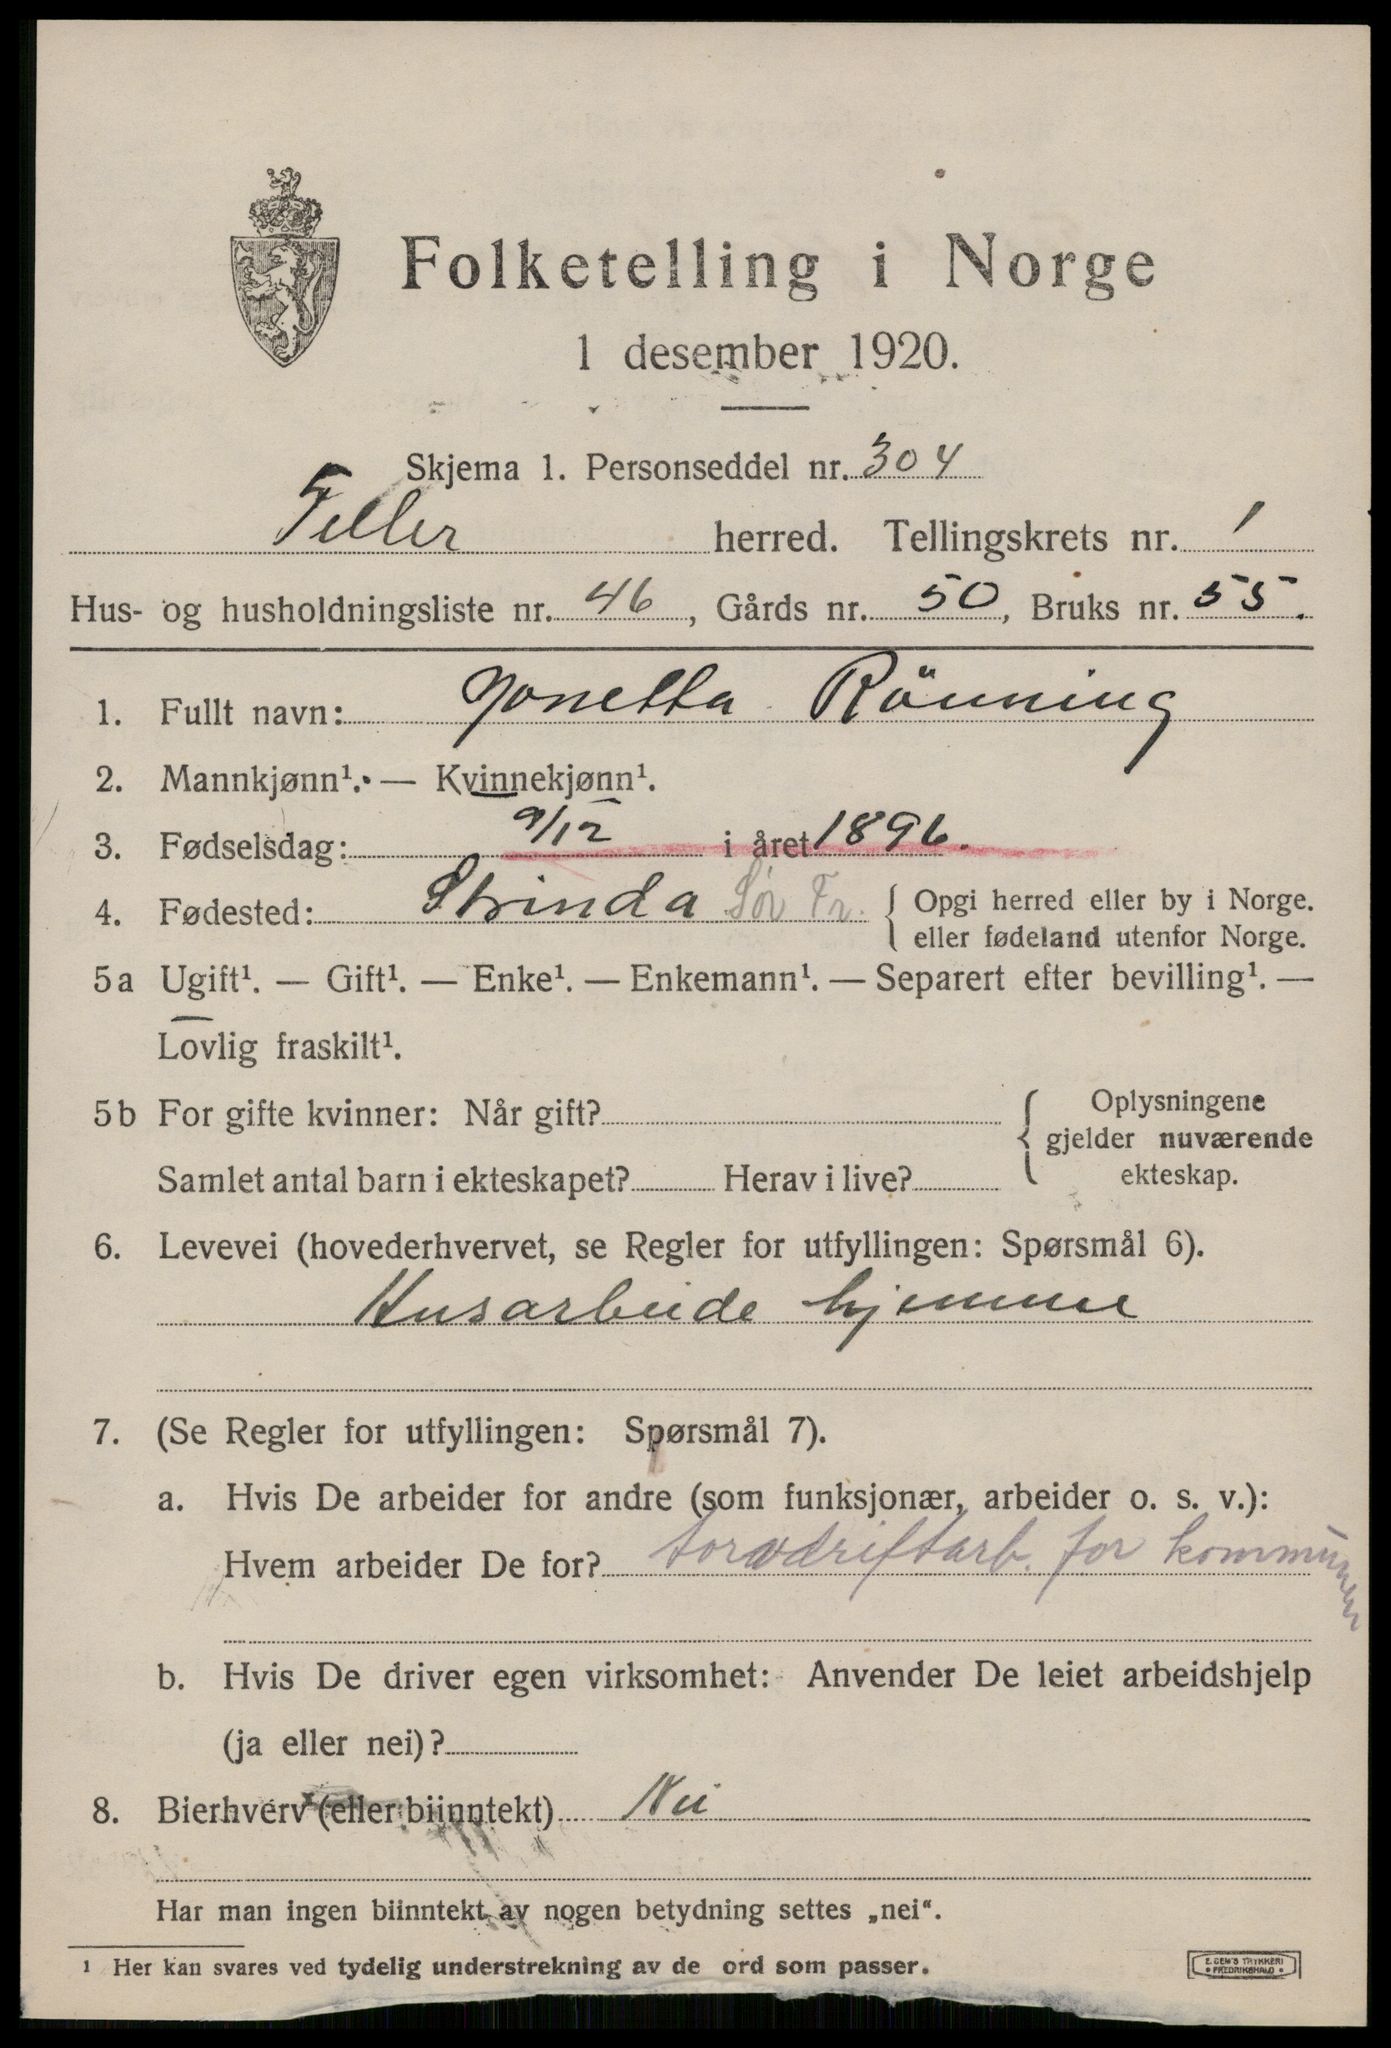 Folketelling i Norge
1 desember 1920.
Skjema 1. Personseddel nr. 304
Tiller herred. Tellingskrets nr. 1
Hus- og husholdningsliste nr. 46, Gårds nr. 50, Bruks nr. 55.
1. Fullt navn: Jonetta Rönning
2. Mannkjønn¹. — Kvinnekjønn¹.
3. Fødselsdag: 9/12 i året 1896.
4. Fødested: Strinda Sør Tr. { Opgi herred eller by i Norge.
eller fødeland utenfor Norge.
5a Ugift¹. — Gift¹. — Enke¹. — Enkemann¹. — Separert efter bevilling¹. —
Lovlig fraskilt¹.
5b For gifte kvinner: Når gift? { Oplysningene
gjelder nuværende
Samlet antal barn i ekteskapet? Herav i live? ekteskap.
6. Levevei (hovederhvervet, se Regler for utfyllingen: Spørsmål 6).
Husarbeide hjemme
7. (Se Regler for utfyllingen: Spørsmål 7).
a. Hvis De arbeider for andre (som funksjonær, arbeider o. s. v.):
Hvem arbeider De for? torvdriftarb. for kommunen
b. Hvis De driver egen virksomhet: Anvender De leiet arbeidshjelp
(ja eller nei)?
8. Bierhverv (eller biinntekt) Nei
Har man ingen biinntekt av nogen betydning settes „nei“.
¹ Her kan svares ved tydelig understrekning av de ord som passer.
E. SEM'S TRYKKERI
FREDRIKSHALD